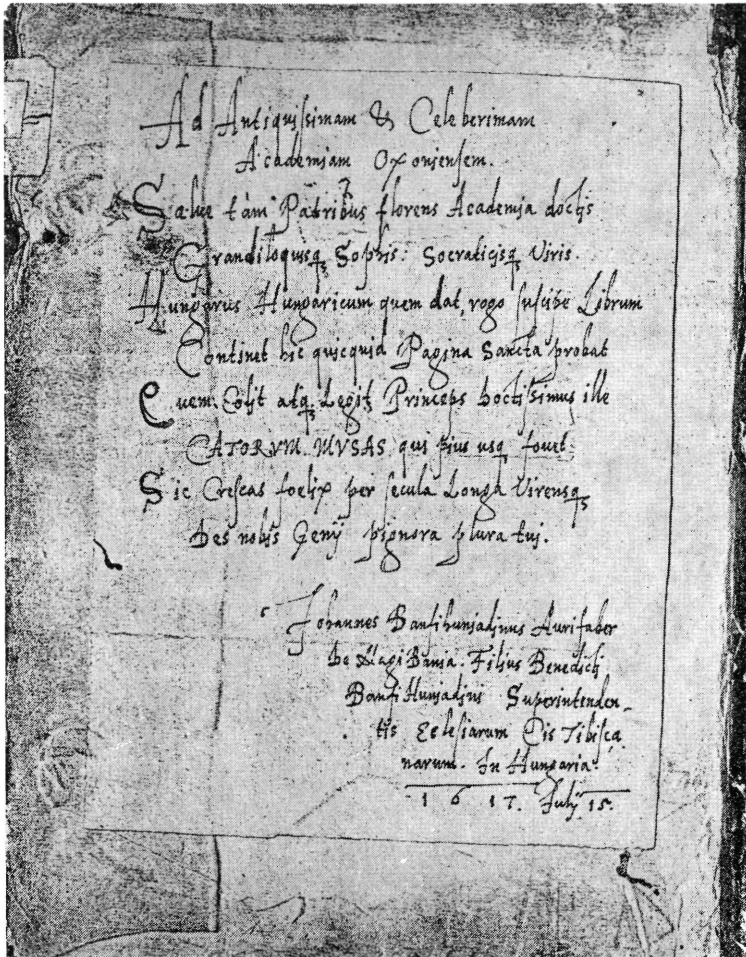 Ad Antiquissimam & Celeberimam
Academiam Oxoniensem.
Salue tam Patribus florens Academia doctis
Grandiloquisq3 Sophis: Socraticisq3 Viris.
Hungarus Hungaricum quem dat, rogo suscipe Librum
Continet hic quicquid Pagina Sancta probat
Quem Colit atq3 Legit Princeps Doctissimus ille
CATORVM MVSAS qui pius usq3 fouet
Sic Crescas foelix per secula Longa Virensq3
Des nobis Genij pignora plura tuj.
Johannes Banfihunjadjnus Aurifaber
De Nagi Bania. Filius Benedicti
Banfi Hunjadjni Superintenden_
tis Eclesiarum Cis Tibisca
narum. In Hungaria.
1617. Julij 15.